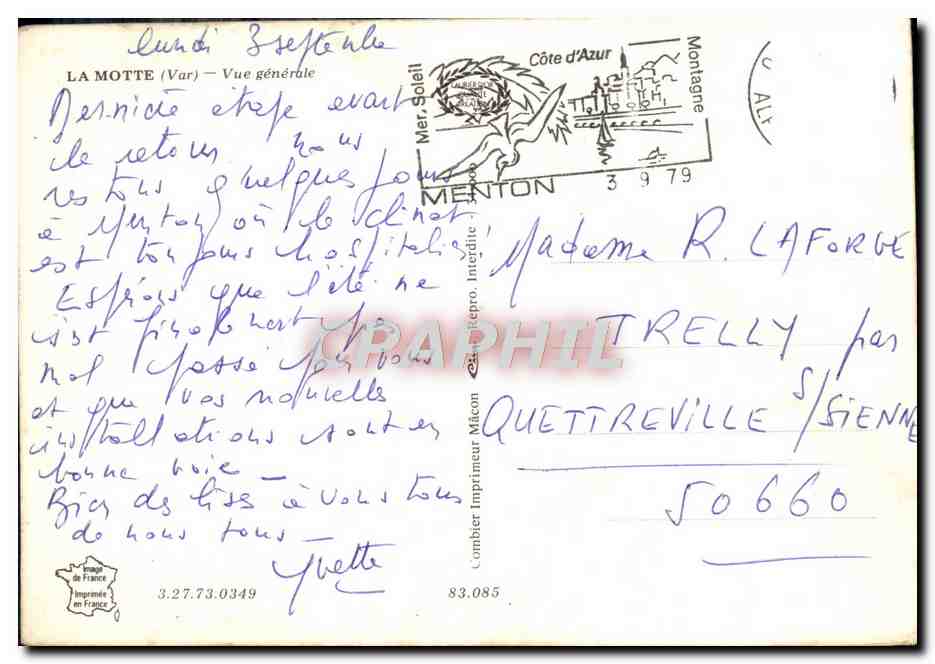 lundi 3 septembre
LA MOTTE (Var) — Vue générale
Dernière étape avant
le retour. Nous
restons quelques jours
à Menton où le climat
est toujours hospitalier!
Espérons que l'été ne
s'est finalement pas
mal passé pour vous
et que vos nouvelles
installations sont en
bonne voie —
Bien des bises à vous tous
de nous tous —
Yvette
Image
de France
Imprimée
en France
3.27.73.0349
83.085
Combier Imprimeur Mâcon
Repro. Interdite
Mer, Soleil
Côte d'Azur
Montagne
MENTON
3 9 79
Madame R. LAFORGE
TRELLY par
QUETTREVILLE S/SIENNE
50660
CRAPHIL